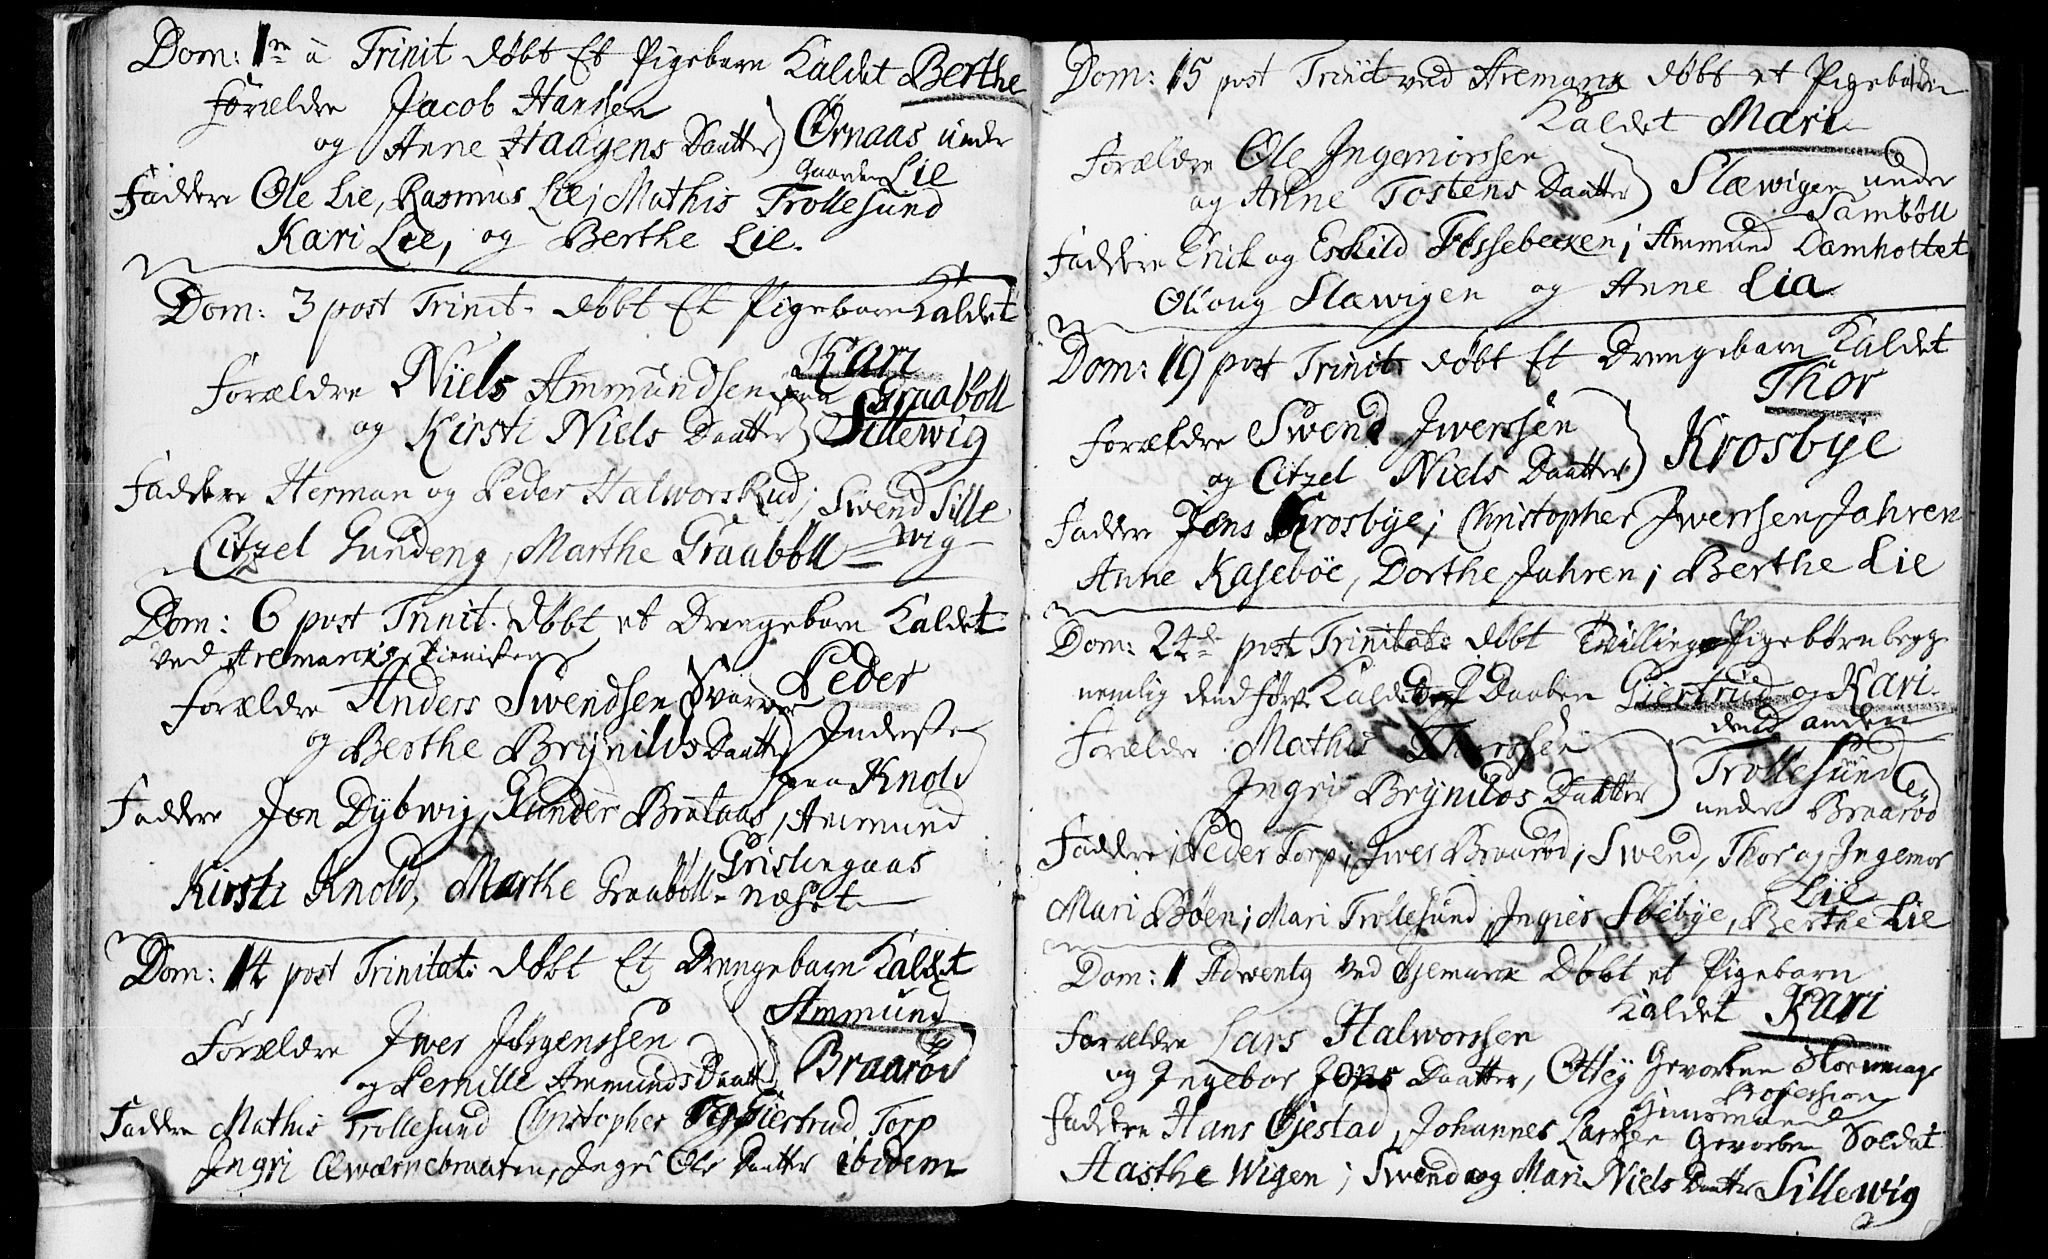 Dom: 1me à Trinit døbt Et Pigebarn Kaldet Berthe
Forældre Jacob Hanssen
og Anne Haagens Daatter Ørnaas under
Gaarden Lie
Faddere Ole Lie, Rasmus Lie; Mathis Trollesund
Kari Lie, og Berthe Lie.
Dom: 3 post Trinit. døbt Et Pigebarn Kaldet
Kari
Forældre Niels Ammundsen fra Graabøll
og Kirsti Niels Daatter Sillewig
Faddere Herman og Peder Halworsrud; Swend Sille
wig
Citzel Gundeng, Marthe Graabøll
Dom: 6 post Trinit. døbt et Drengebarn Kaldet
ved Aremarks Tienisten
Peder
Forældre Anders Swendsen Svarver
og Berthe Brynilds Daatter Inderste
paa Knold
Faddere Jon Dybwig, Gunder Brataas, Ammund
Gristingaas
Kirsti Knold, Marthe Graabøll næset
Dom: 14 post Trinitat: døbt Et Drengebarn Kaldet
Ammund
Forældre Iwer Jørgenssen
og Pernille Ammunds Daatt: Braarød
Faddere Mathis Trollesund Christopher og Giertrud Torp
Ingri Qwærnebraaten, Ingri Ols Daatter ibidem
Dom: 15 post Trinit ved Aremark døbt et Pigebarn
Kaldet Mari
Forældre Ole Ingemorssen
og Anne Tostens Daatter Slæwigen under
Tambøll
Faddere Erick og Eskild Fossebecken; Ammund Damholtet
Olloug Slæwigen og Anne Lia
Dom: 19 post Trinit: døbt Et Drengebarn Kaldet
Thor
Forældre Swend Iwerssen
og Citzel Niels Daatter Krosbye
Faddere Jens Krosbye; Christopher Iwerssen Jahren
Anne Kasebøe, Dorthe Jahren; Berthe Lie
Dom: 24de post Trinitat: døbt Tvillinge Pigebørn begge
nemlig dend første Kaldet i Daaben Giertrud og Kari
dend anden
Forældre Mathis Thorssen
Ingri Brynilds Daatter Trollesund
under Braarød
Faddere Peder Torp, Iwer Braarød; Swend, Thor og Ingemor
Lie
Mari Bøen; Mari Trollesund, Ingier Søebye, Berthe Lie
Dom: 1 Adwenty ved Øjemark Døbt et Pigebarn
Kaldet Kari
Forældre Lars Halworssen
og Ingebor Jons Daatter, Ottey Gevorben Skoemager
Profession
Huusmand
Faddere Hans Øjestad, Johannes Larssen Gevorben Soldat
Aasthe Wigen; Swend og Mari Niels Daatter Sillewig